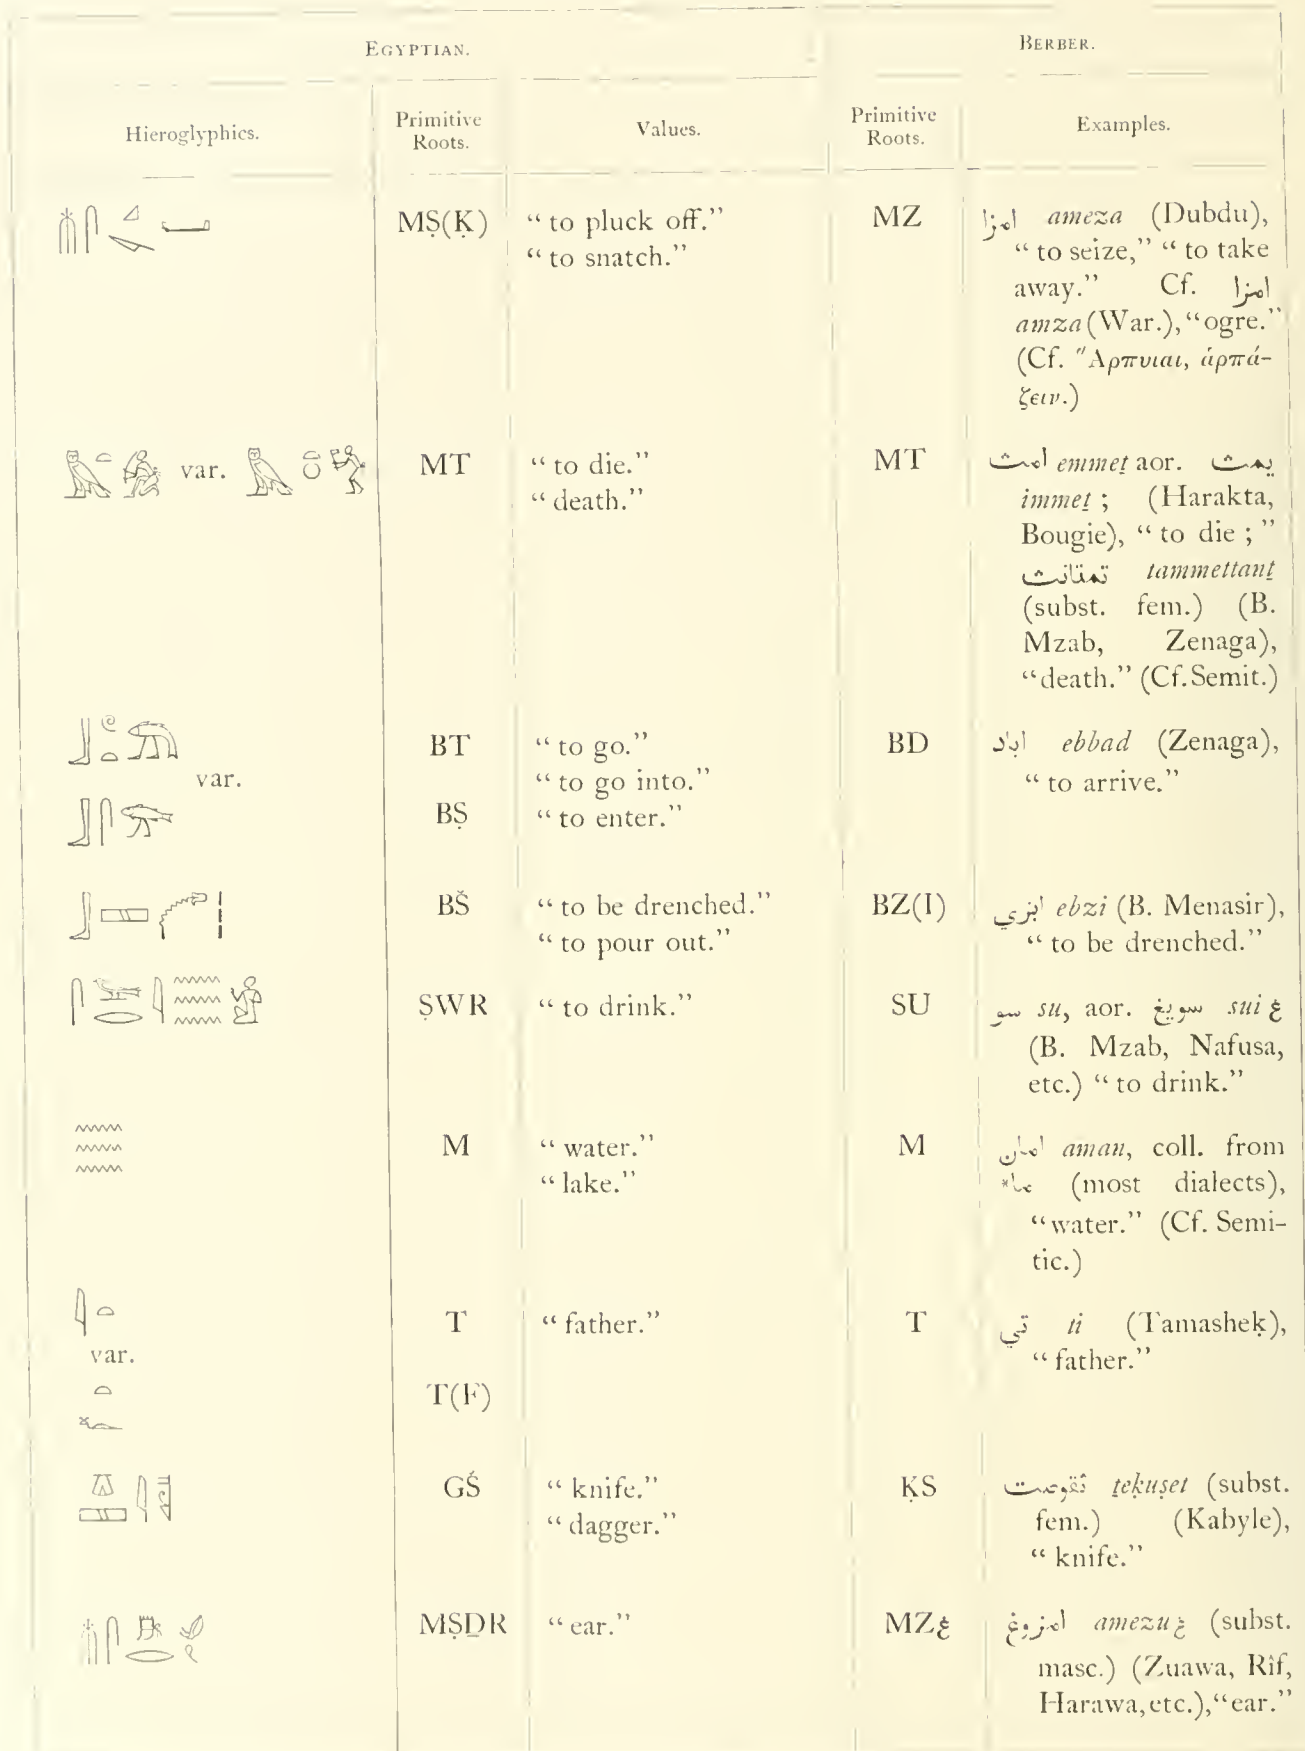 EGYPTIAN. BERBER.
Hieroglyphics. Primitive Roots. Values. Primitive Roots. Examples.
MṢ(Ḳ) “to pluck off.” MZ امزا ameza (Dubdu),
“to snatch.” “to seize,” “to take
away.” Cf. امزا
amza (War.), “ogre.”
(Cf. Ἅρπυιαι, ἁρπά-
ζειν.)
var. MT “to die.” MT امث emmeṯ aor. يمث
“death.” immeṯ ; (Harakta,
Bougie), “to die ;”
تمتانث tammettanṯ
(subst. fem.) (B.
Mzab, Zenaga),
“death.” (Cf. Semit.)
BT “to go.” BD اباد ebbad (Zenaga),
var. “to go into.” “to arrive.”
BṢ “to enter.”
BŠ “to be drenched.” BZ(I) ابزي ebzi (B. Menasir),
“to pour out.” “to be drenched.”
ṢWR “to drink.” SU سو su, aor. سويغ sui غ
(B. Mzab, Nafusa,
etc.) “to drink.”
M “water.” M امان aman, coll. from
“lake.” ماء (most dialects),
“water.” (Cf. Semi-
tic.)
T “father.” T تي ti (Tamasheḳ),
var. “father.”
T(F)
GŚ “knife.” ḲS ثقوصت ṯeḳuṣet (subst.
“dagger.” fem.) (Kabyle),
“knife.”
MṢḎR “ear.” MZغ امزوغ amezu غ (subst.
masc.) (Zuawa, Rîf,
Harawa, etc.), “ear.”